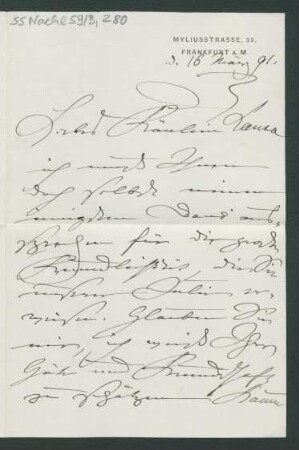 55 Nachl 59/B, 280
MYLIUSSTRASSE, 32,
FRANKFURT A. M.
d. 16 März 91.
Liebes Fräulein Laura
ich muß Ihnen
doch selbst meinen
innigsten Dank aus-
sprechen für die große
Freundlichkeit, die Sie
unserer Julie er-
wiesen. Glauben Sie
mir, ich weiß Ihre
Güte und Freundschaft
zu schätzen